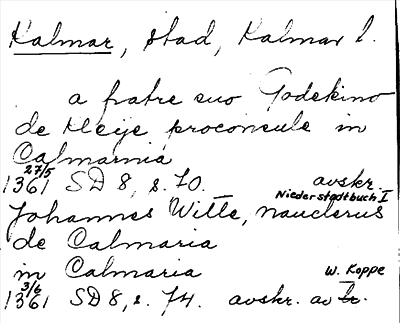 Kalmar, stad, Kalmar l.
a fratre suo Godekino
de Heije proconsule in
Calmarnia
27/5
1361 SD 8, s. 70. avskr.
Niederstadtbuch I
Johannes Witte, nauclerus
de Calmaria
in Calmaria
W. Koppe
3/6
1361 SD 8, s. 74. avskr. av tr.